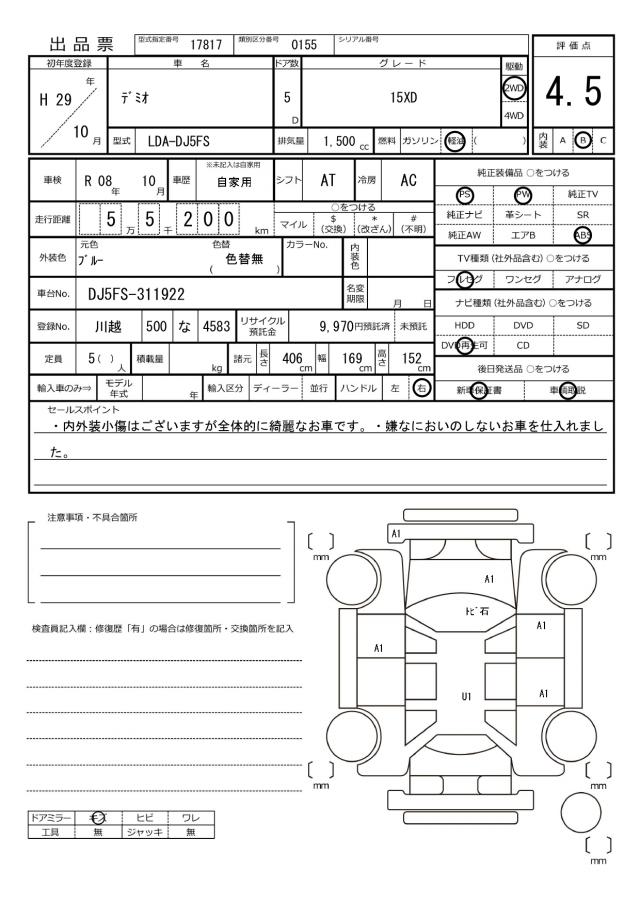 出品票 型式指定番号 17817 類別区分番号 0155 シリアル番号
評価点
4.5
内装 A B C
初年度登録 車名 ドア数 グレード 駆動
H 29 年 10 月
デミオ 5 D 15XD 2WD
4WD
型式 LDA-DJ5FS 排気量 1,500 cc 燃料 ガソリン 軽油 ( )
車検 R 08 年 10 月 車歴 ※未記入は自家用 自家用 シフト AT 冷房 AC
走行距離 5 万 5 千 2 0 0 km ○をつける
マイル $ (交換) * (改ざん) # (不明)
外装色 元色 ブルー 色替 ( 色替無 ) カラーNo. 内装色
車台No. DJ5FS-311922 名変期限 月 日
登録No. 川越 500 な 4583 リサイクル預託金 9,970円預託済 未預託
定員 5( )人 積載量 kg 諸元 長さ 406 cm 幅 169 cm 高さ 152 cm
輸入車のみ⇒ モデル年式 年 輸入区分 ディーラー 並行 ハンドル 左 右
純正装備品 ○をつける
PS PW 純正TV
純正ナビ 革シート SR
純正AW エアB ABS
TV種類(社外品含む) ○をつける
フルセグ ワンセグ アナログ
ナビ種類(社外品含む) ○をつける
HDD DVD SD
DVD再生可 CD
後日発送品 ○をつける
新車保証書 車輌取説
セールスポイント
・内外装小傷はございますが全体的に綺麗なお車です。・嫌なにおいのしないお車を仕入れまし
た。
注意事項・不具合箇所
検査員記入欄：修復歴「有」の場合は修復箇所・交換箇所を記入
ドアミラー キズ ヒビ ワレ
工具 無 ジャッキ 無
A1
[ ] mm
[ ] mm
A1
トビ石
A1
A1
A1
U1
[ ] mm
[ ] mm
[ ] mm